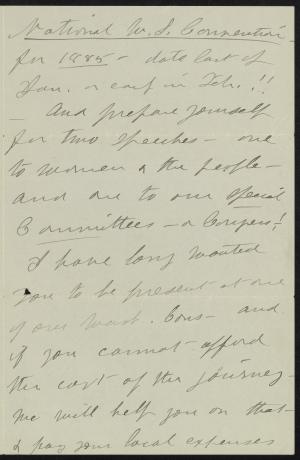 National W. S. Convention
for 1885 - date last of
Jan. or early in Feb.!!
- And prepare yourself
for two speeches - one
to women & the people -
and one to our Special
Committees - or Congress!
I have long wanted
you to be present at one
of our Wash. Cons - and
if you cannot afford
the cost of the journey -
we will help you on that -
& pay your local expenses